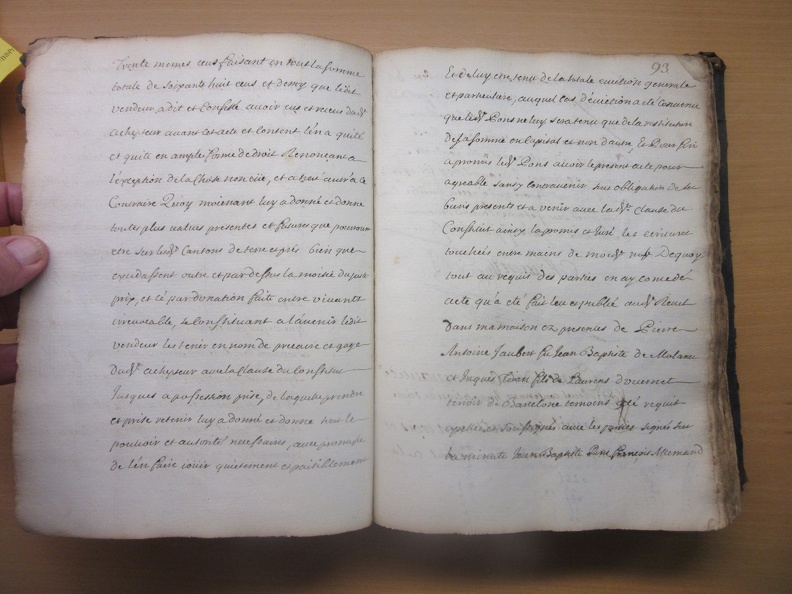 Trente mêmes ecus faisant en tout la somme
totale de soixante huit ecus et demy que ledit
vendeur a dit et confessé avoir eus et receus dud.
acheteur avant cet acte et content l'en a quitté
et quitte en ample forme de droit Renonçant a
l'exception de la chose non eüe, et a tout autre a ce
Contraire Quoy moienant luy a donné et donne
toutes plus values presentes et futures que pourroient
etre sur lesd. Cantons de terre et prés bien que
excedassent outre et par dessus la moitié du juste
prix, et ce par donation faite entre vivants
irrevocable, se Constituant a l'avenir ledit
vendeur les tenir en nom de precaire et gage
dud. acheteur avec la Clause du Constitut
Jusques a possession prise, de laquelle prendre
et prise retenir luy a donné et donne tout le
pouvoir et autorité necessaires, avec promesse
de l'en faire jouir quietement et paisiblement
93
Et de luy etre tenu de la totale eviction generale
et particuliere, auquel cas d'eviction a eté convenu
que led. Pons ne luy sera tenu que de la restitution
de sa somme en capital et non d'autre Et
a promis led. Pons avoir le present acte pour
agreable sans y contrevenir sous obligation de ses
biens presents et a venir avec lad. Clause du
Constitut ainsy l'a promis et juré les ecritures
touchées entre mains de moy Dequoy
tout au requis des parties en ay concedé
acte qu'a eté fait leu et publié aud.
Dans ma maison ez presences de Pierre
Antoine Jaubert fu Jean Baptiste de
et Jean fils de Laurens
terroir de Barcelone temoins requis
avec les parties signés sur
la minute Jean Baptiste Pons François Allemand